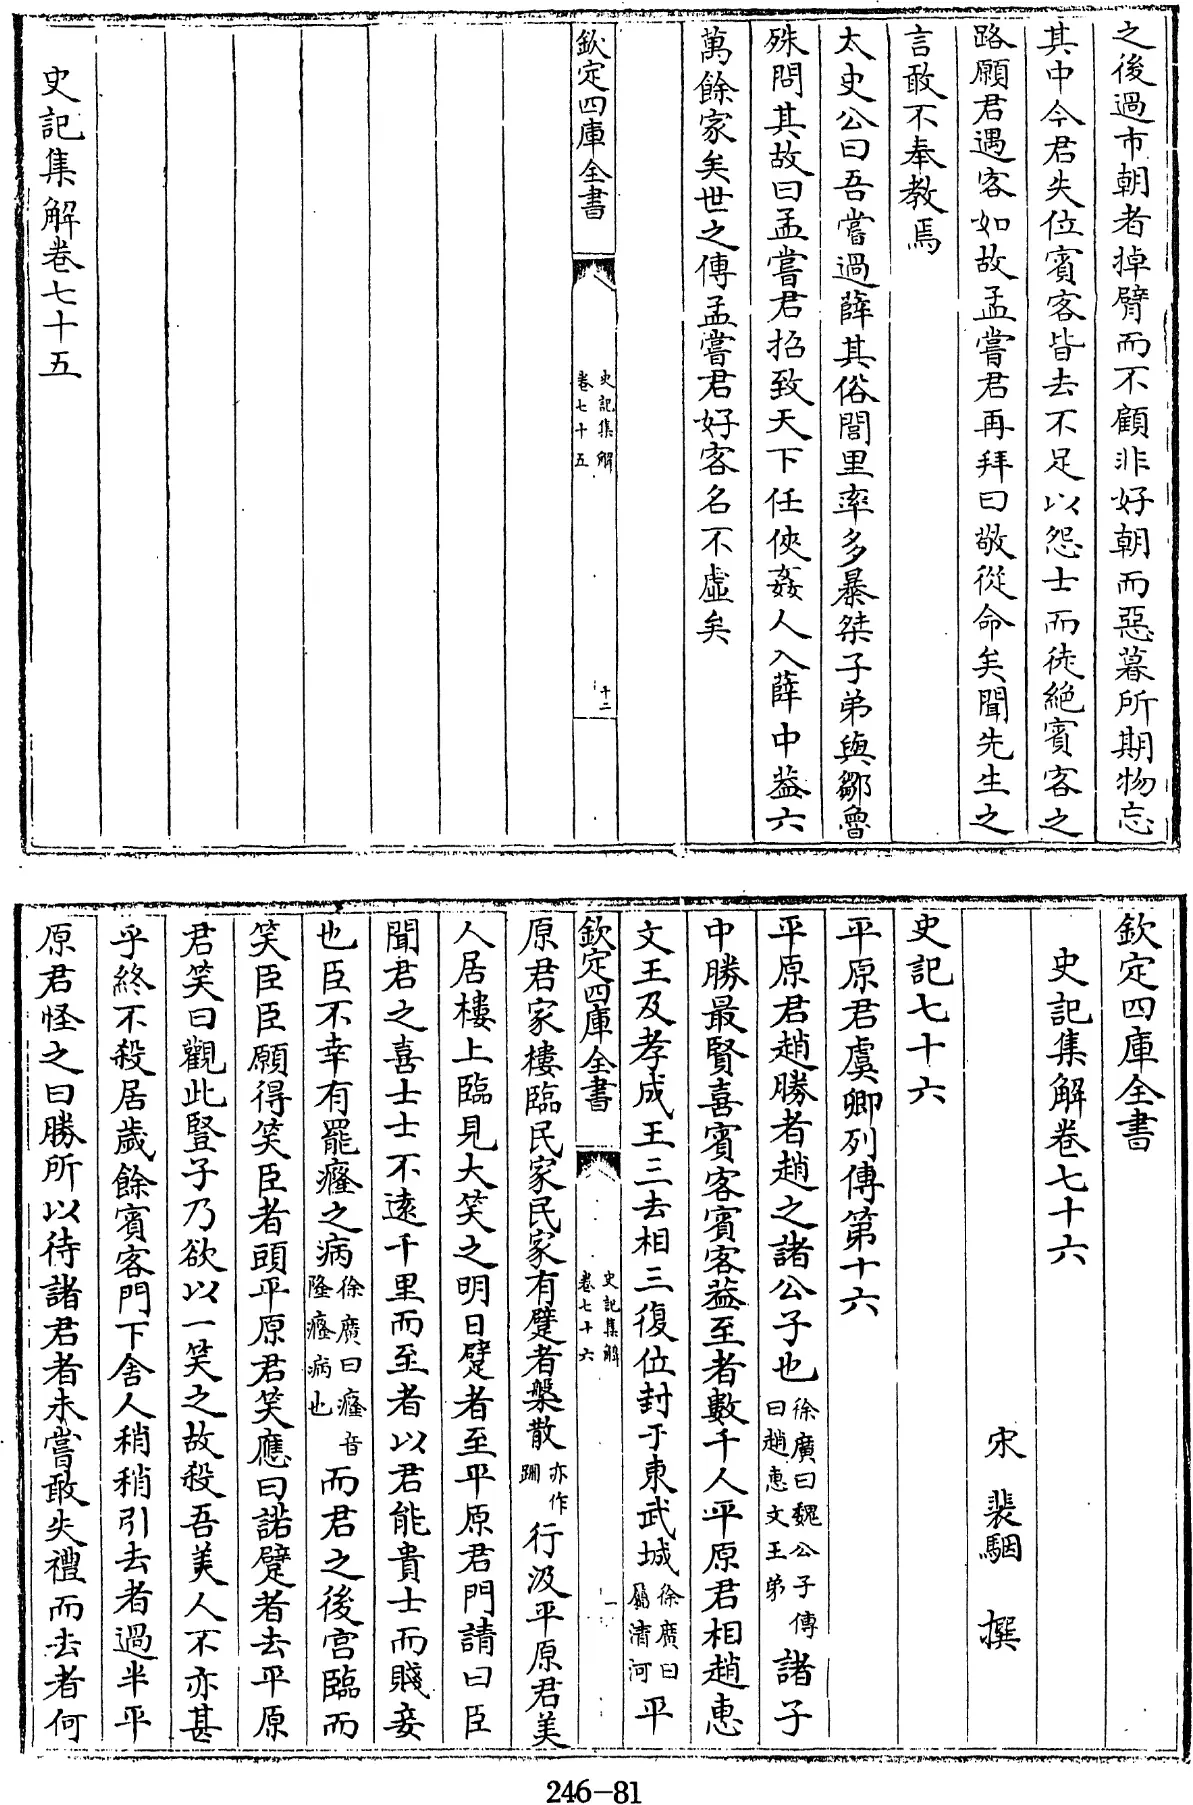 之後過市朝者掉臂而不顧非好朝而惡暮所期物忘
其中今君失位賓客皆去不足以怨士而徒絶賓客之
路願君遇客如故孟嘗君再拜曰敬從命矣聞先生之
言敢不奉教焉
太史公曰吾嘗過薛其俗閭里率多暴桀子弟與鄒魯
殊問其故曰孟嘗君招致天下任俠姦人入薛中葢六
萬餘家矣世之傳孟嘗君好客名不虛矣
欽定四庫全書
史記集解
卷七十五
十二
史記集解卷七十五
欽定四庫全書
史記集解卷七十六
宋 裴駰 撰
史記七十六
平原君虞卿列傳第十六
平原君趙勝者趙之諸公子也徐廣曰魏公子傳曰趙惠文王弟諸子
中勝最賢喜賓客賓客葢至者數千人平原君相趙惠
文王及孝成王三去相三復位封于東武城徐廣曰屬清河平
欽定四庫全書
史記集解
卷七十六
一
原君家樓臨民家民家有躄者槃散亦作跚行汲平原君美
人居樓上臨見大笑之明日躄者至平原君門請曰臣
聞君之喜士士不遠千里而至者以君能貴士而賤妾
也臣不幸有罷癃之病徐廣曰癃音隆癃病也而君之後宮臨而
笑臣臣願得笑臣者頭平原君笑應曰諾躄者去平原
君笑曰觀此豎子乃欲以一笑之故殺吾美人不亦甚
乎終不殺居歲餘賓客門下舍人稍稍引去者過半平
原君怪之曰勝所以待諸君者未嘗敢失禮而去者何
246-81